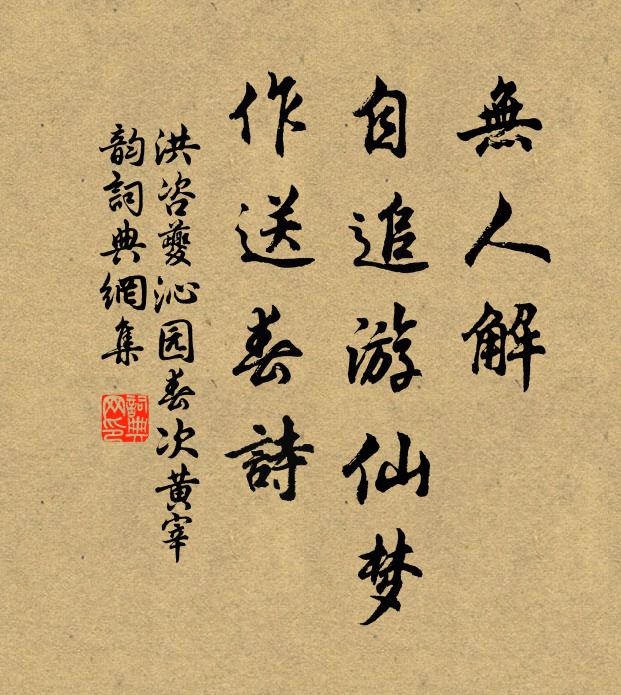 無人解
自追游仙梦
作送春詩
洪咨夔沁园春次黄宰
韵詞典網集
詞典
网印